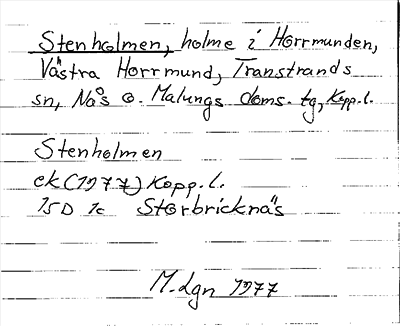 Stenholmen, holme i Horrmunden,
Västra Horrmund, Transtrands
sn, Nås o. Malungs doms. tg, Kopp.l.
Stenholmen
ek (1977) Kopp.l.
15D 1c Storbricknäs
M. Lgn 1977